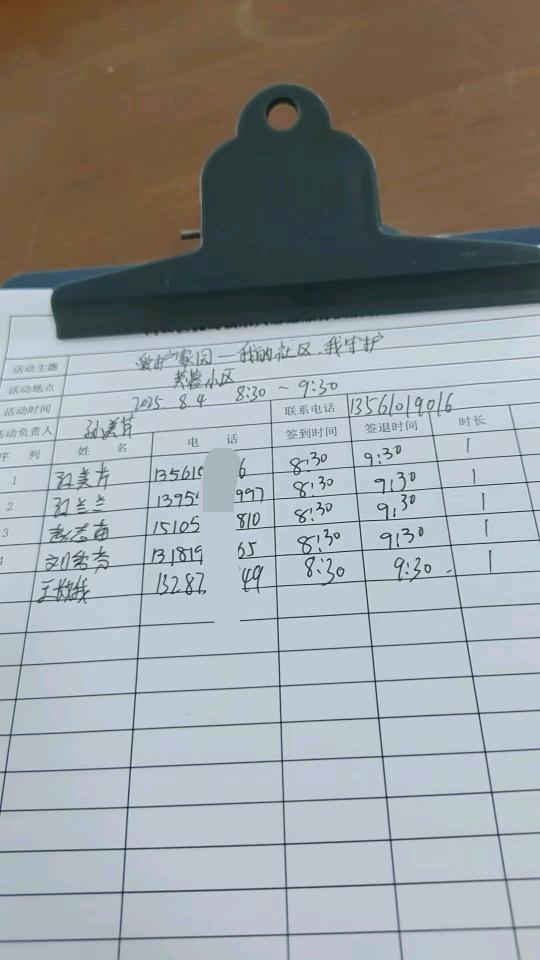 活动主题 爱护家园—我的社区.我守护
活动地点 芙蓉小区
活动时间 2025.8.4 8:30~9:30
活动负责人 孙美芹 联系电话 13561019016
序列 姓名 电话 签到时间 签退时间 时长
1 孙美芹 13561 6 8:30 9:30 1
2 孙兰兰 1395 997 8:30 9:30 1
3 15105 810 8:30 9:30 1
4 131819 65 8:30 9:30 1
13287 49 8:30 9:30 1